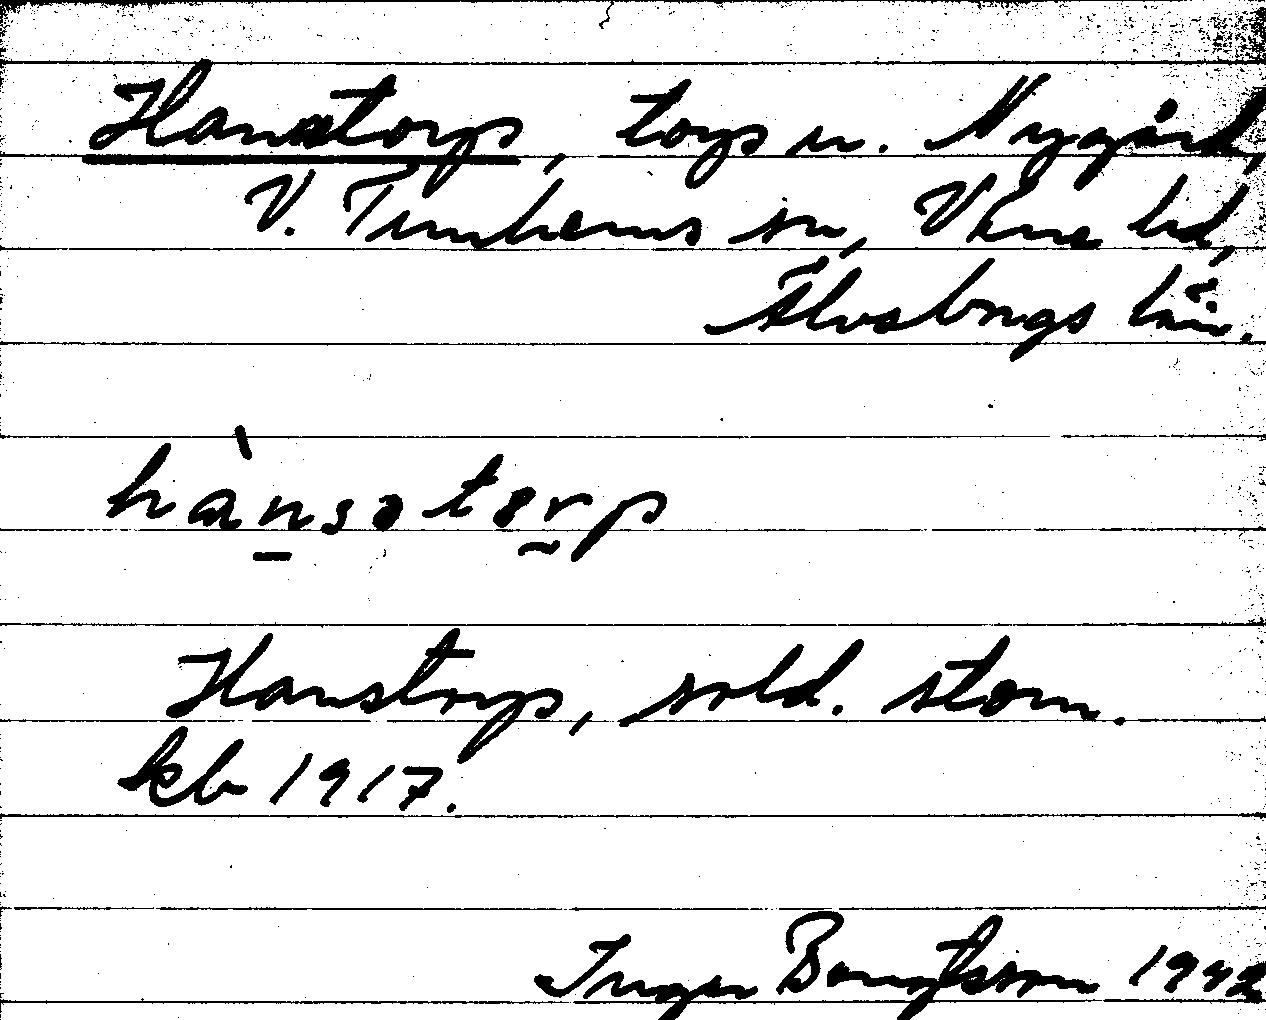 Hanstorp, torp u. Nygård,
V. Tunhems sn, Väne hd,
Älvsborgs län.
hànsətɵrp
Hanstorp, sold. stom.
kb 1917.
Inger Bengtsson 1942